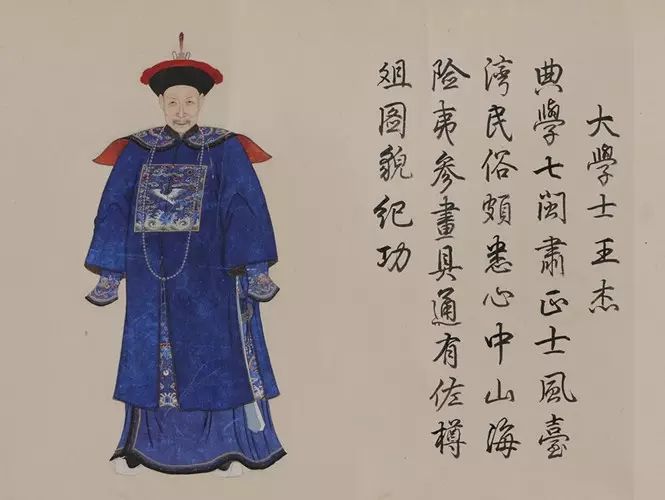 大學士王杰
典學七閩肅正士風臺
湾民俗頗悉心中山海
險夷參畫具通有佐樽
俎圖貌紀功